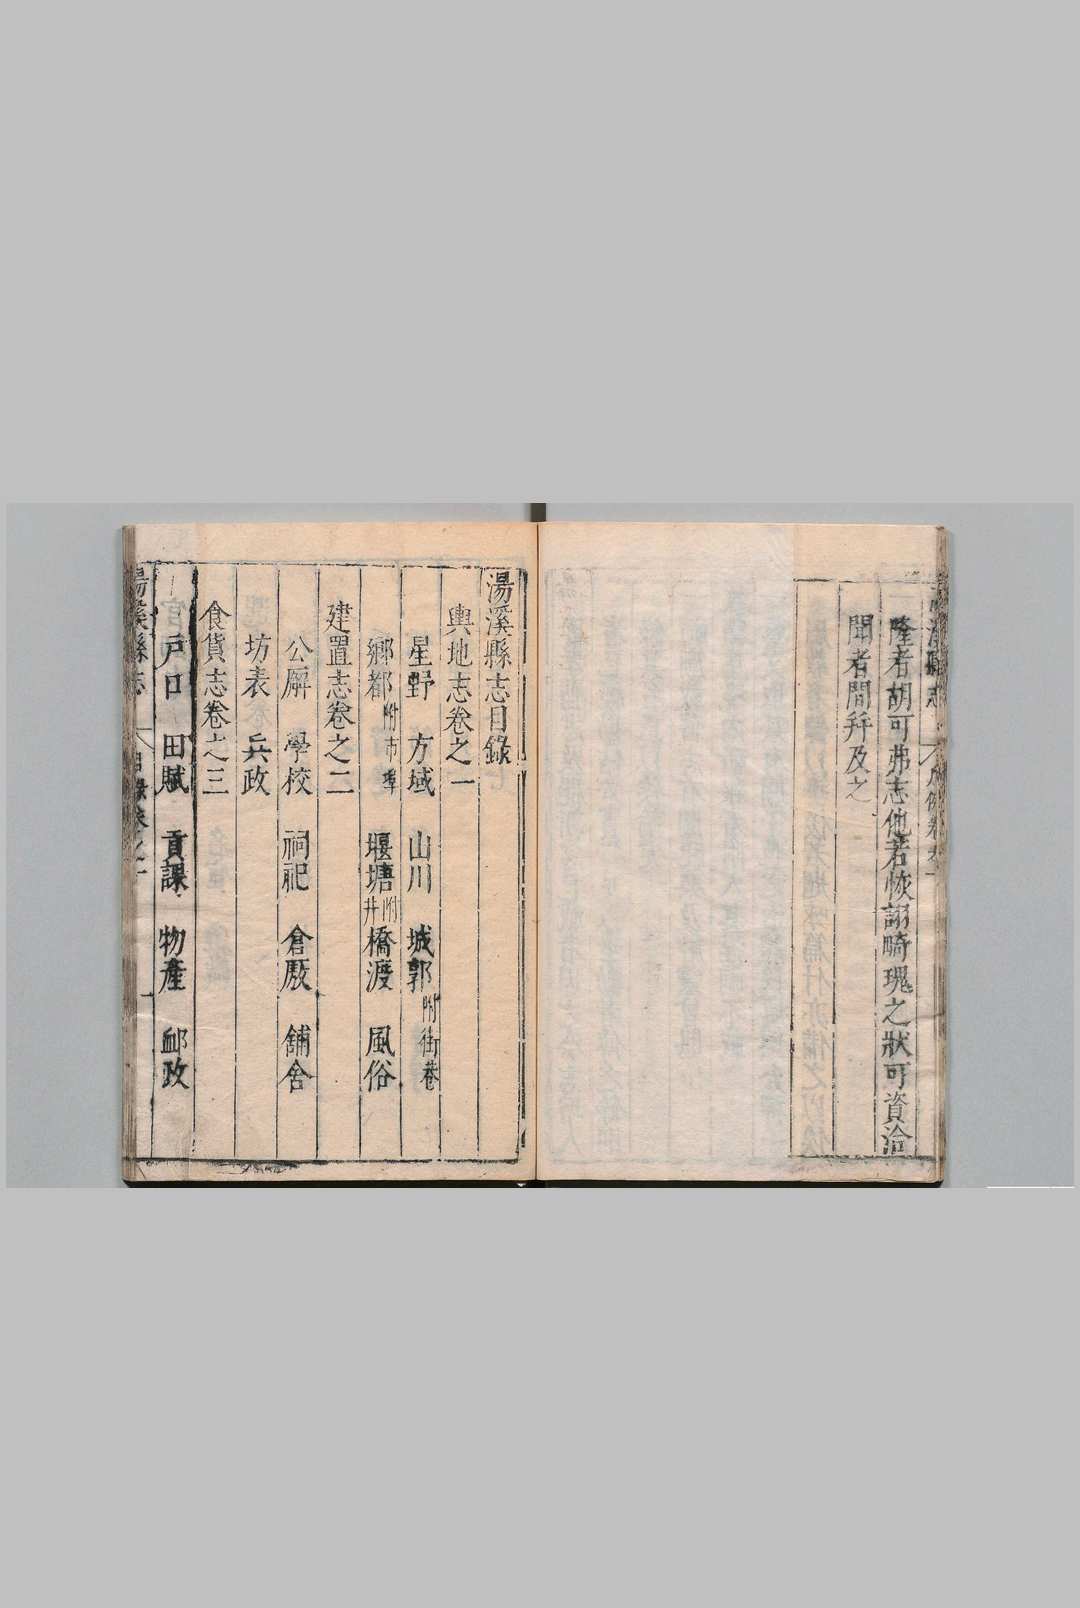 隆者胡可弗志他若恢詡畸瑰之狀可資洽
聞者間拜及之
湯溪縣志目錄
輿地志卷之一
星野 方域 山川 城郭附街巷
鄉都附市 堰塘附井 橋渡 風俗
建置志卷之二
公廨 學校 祠祀 倉厫 舖舍
坊表 兵政
食貨志卷之三
戶口 田賦 貢課 物產 邮政
湯溪縣志